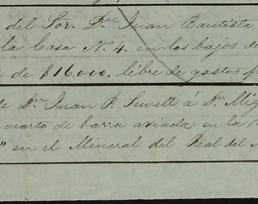 del Sor. Dn. Juan Bautista
la Casa No. 4. en los bajos de
de $16000. libre de gastos p
de Dn. Juan P. Sewell á Dn. Mig
cuarto de barra aviada en la
" en el Mineral del Real del